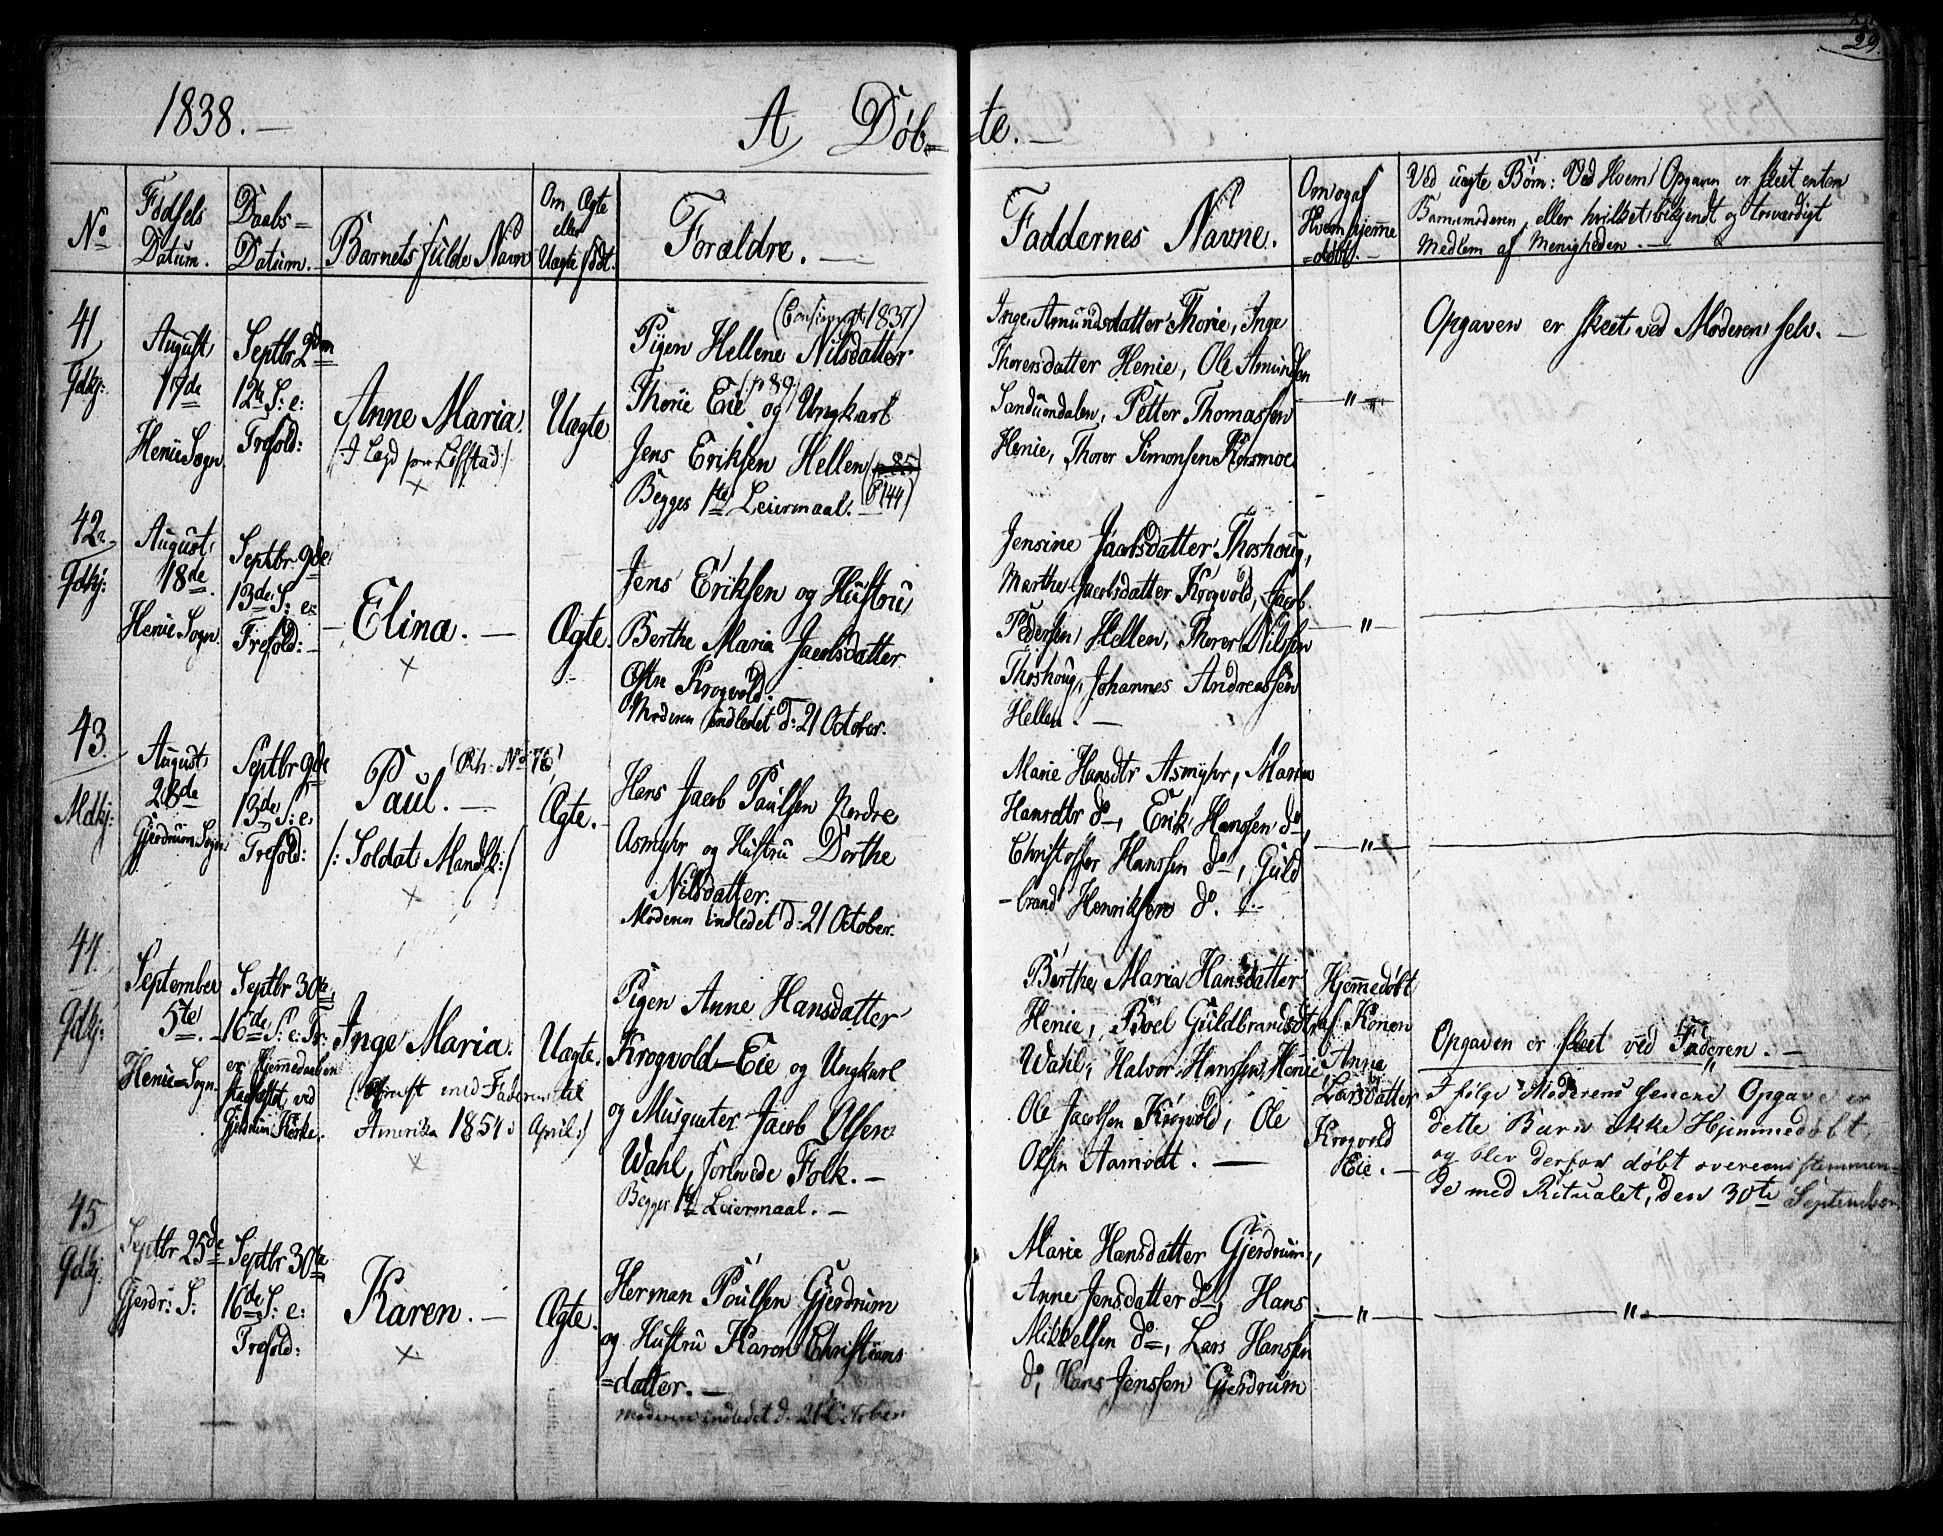 29.
1838. —
A Døb=
te. —
No
Fødsels Datum.
Daabs= Datum.
Barnets fulde Navn
Om Ægte eller Uægte født.
Forældre. —
Faddernes Navne.
Om og af Hvem hjemme =døbt. —
Ved uægte Børn: Ved Hvem Opgaven er skeet enten
Barnemoderen, eller hvilket bekjendt og troværdigt
Medlem af Menigheden. —
41
Gdkj:
August
19de
Henie Sogn
Septbr 2den
12te S: e:
Trefold:
Anne Maria
Uægte
1837)
Pigen Hellene Nilsdatter
(p 89)
Thorie Eie og Ungkarl
Jens Eriksen Hellen (p 85)
Begges 1te Leiermaal. P 144)
Inge Amundsdatter Thorie, Inge
Thorersdatter Henie, Ole Amundsen
Sandumdalen, Petter Thomassen
Henie, Thorer Simonsen Korsmoe
— " —
Opgaven er skeet ved Moderen selv. —
42.
Gdkj:
August
18de
Henie Sogn
Septbr 9de
13de S: e:
Trefold: —
— Elina. —
×
Ægte.
Jens Eriksen og Hustru
Berthe Maria Jacobsdatter
Krogvold.
Moderen indledet d: 21 October.
Jensine Jacobsdatter Thoshoug,
Marthe Jacobsdatter Krogvold, Jacob
Pedersen Hellen, Thorer Nilsen
Thoshoug, Johannes Andreassen
Hellen. —
— " —
43.
Mdkj:
August
28de
Gjerdrum Sogn
Septbr 9de
13de S: e:
Trefold:
(Rh: No 76)
Paul. —
/: Soldat Mandsk:/
×
Ægte.
Hans Jacob Paulsen Nordre
Asmyhr og Hustru Dorthe
Nilsdatter.
Moderen indledet d: 21 October.
Marie Hansdtr Asmyhr, Maren
Hansdtr do, Erik Hanssen do
Christoffer Hanssen do, Guld
-brand Henriksen do.
— " —
44.
Gdkj:
September
5te
Henie=Sogn.
Septbr 30te
16de S: e: Tr:
er Hjemmedaaben
stadfæstet ved
Gjerdrum Kirke.
Inge Maria.
(Udreist med Faderen til
Amerika 1854 i April:)
×
Uægte.
Pigen Anne Hansdatter
Krogvold-Eie og Ungkarl
og Musqueter Jacob Olsen
Wahl, forlovede Folk. —
Begges 1te Leiermaal. —
Berthe Maria Hansdatter
Henie, Böel Guldbrandsdtr
Wahl, Halvor Hanssen Henie
Ole Jacobsen Krogvold, Ole
Olsen Aamodt. —
Hjemmedøbt
af Konen
Anne
Larsdatter
Krogvold
Eie. —
Opgaven er skeet ved Faderen. —
I følge Moderens senere Opgave er
dette Barn ikke Hjemmedøbt,
og blev derfor døbt overeensstemmen-
de med Ritualet, den 30te September
45
Gdkj:
Septbr 25de
Gjerdr: S:
Septbr 30te
16de S: e:
Trefold:
Karen. —
×
Ægte.
Herman Poulsen Gjerdrum
og Hustru Karen Christians
=datter. —
Moderen indledet d. 21 October
Marie Hansdatter Gjerdrum,
Anne Jensdatter do, Hans
Mikkelsen do, Lars Hansen
do, Hans Jenssen Gjerdrum
— " —
— " —